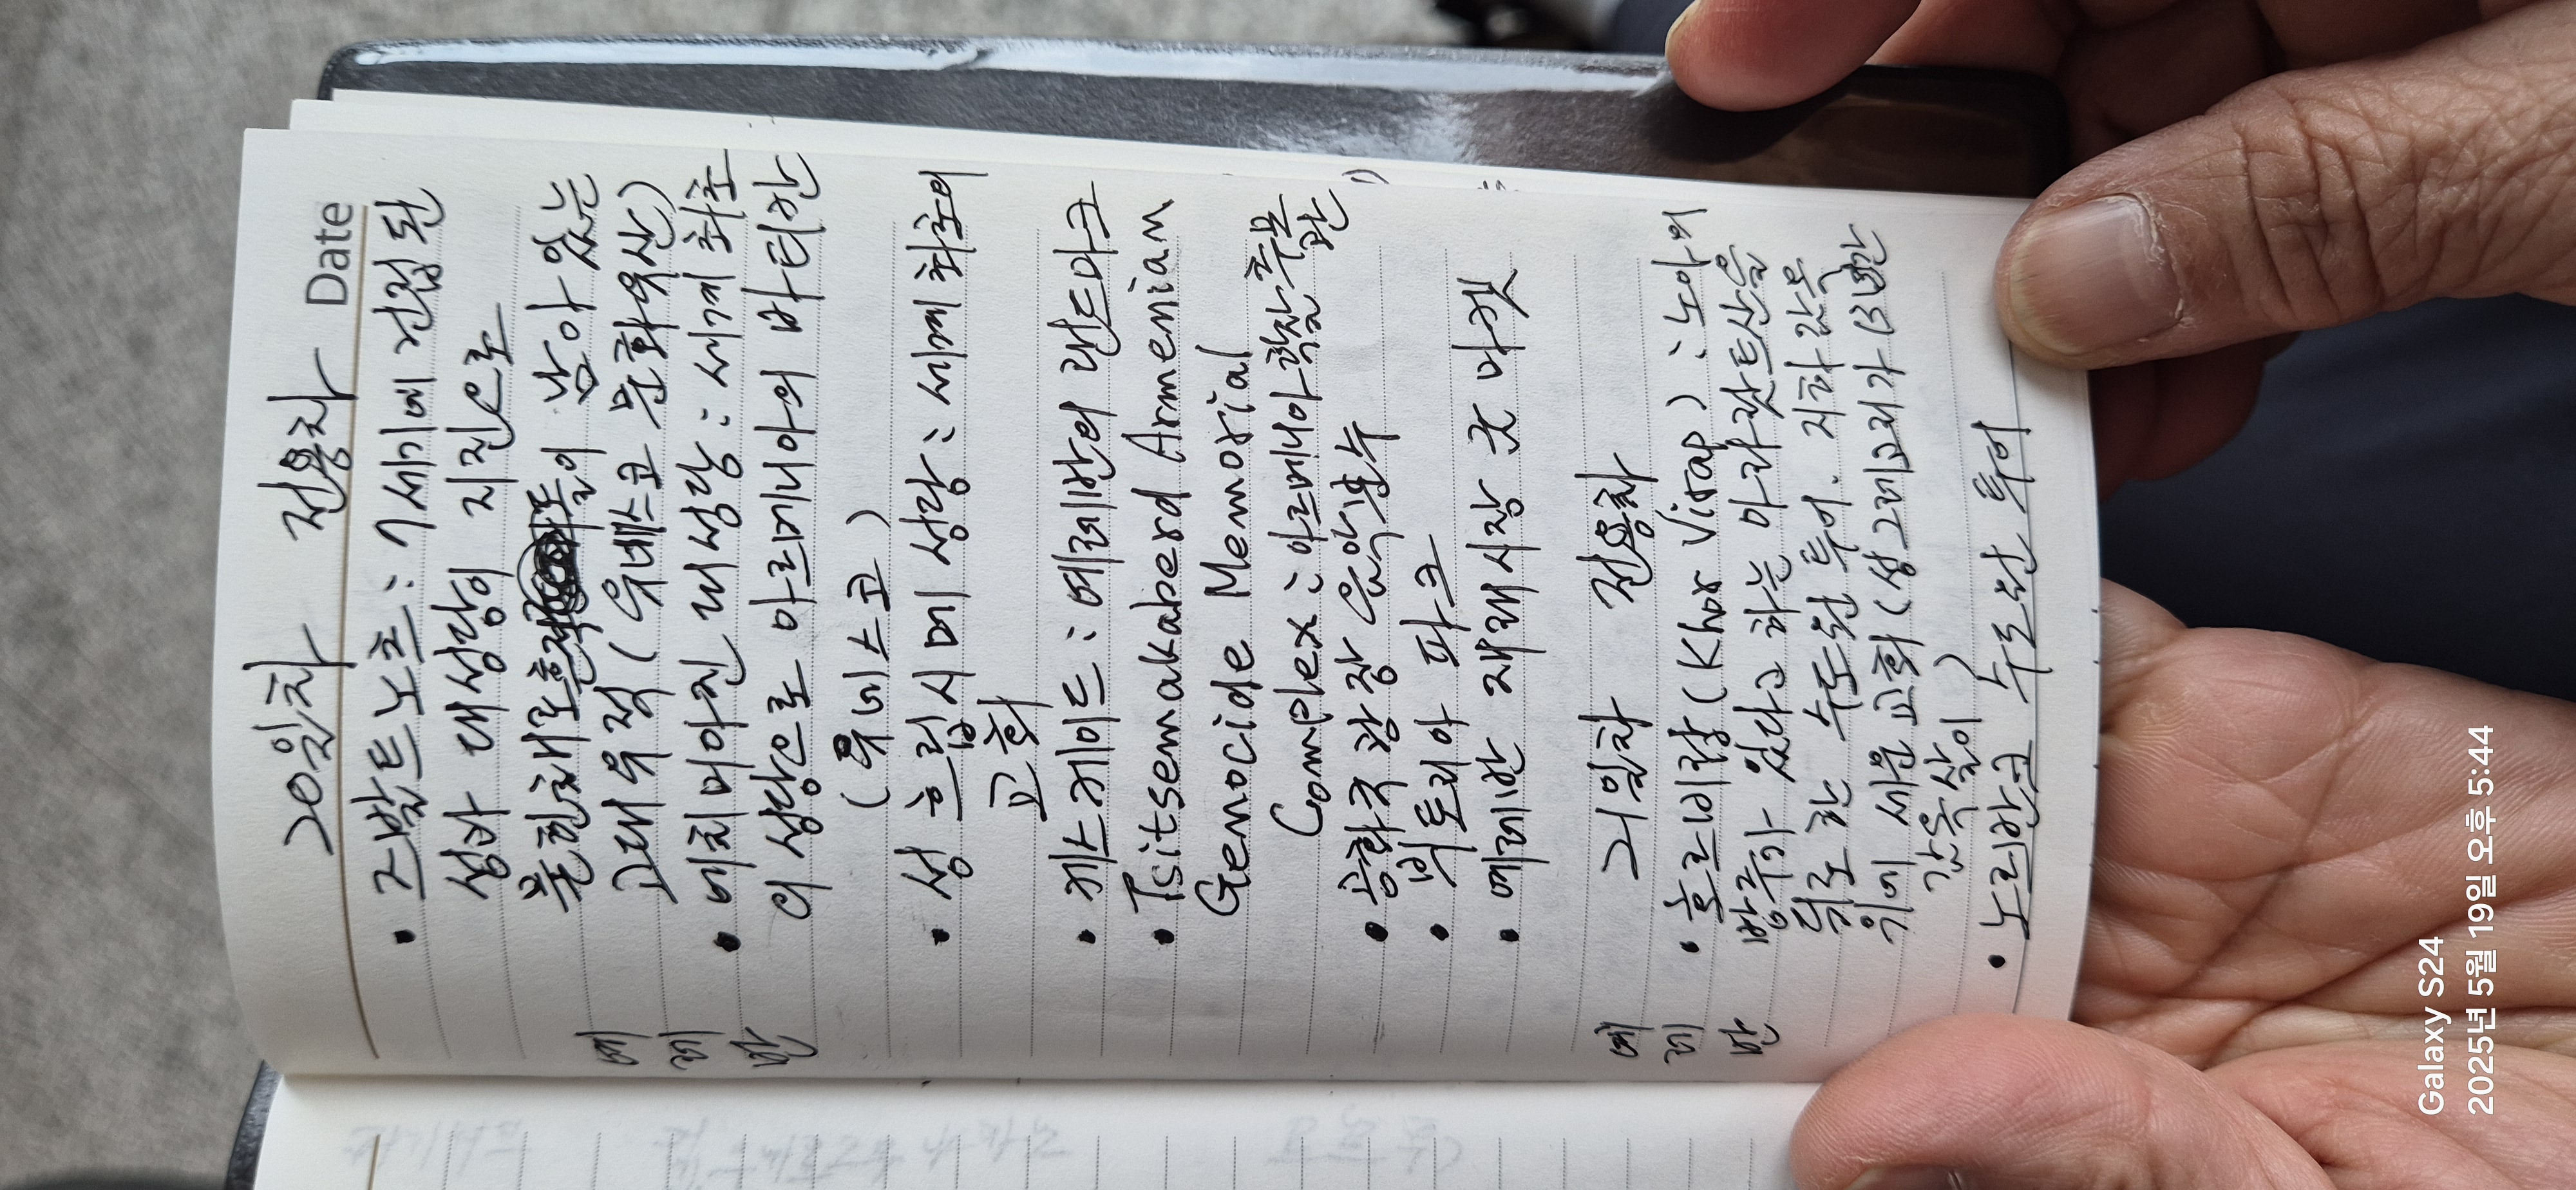 Date
20일차 전용차
• 즈발트노츠 : 7세기에 건설된
성바 대성당이 지진으로
붕현채로 흔적들이 남아 있는
고대유적 (유네스코 문화유산)
• 에치미아진 대성당 : 세계 최초
의 성당으로 아르메니아의 바티칸
(유네스코)
• 성 흐립시메 성당 : 세계 최초의
교회
• 케스케이드 : 예레반의 랜드마크
• Tsitsernakaberd Armenian
Genocide Memorial
Complex : 아르메니아 학살 추모관
• 공화국 광장 음악분수
• 빅토리아 파크
• 예레반 재래시장 굿 마켓
예레반
21일차 전용차
• 호르비랍 (Khor Virap) : 노아의
방주가 있다고 하는 아라랏트산을
뒤로 한 수도원 투어. 지하감옥
위에 세운 교회 (성 그레고리가 13년간
감옥살이)
• 노라반크 수도원 투어
예레반
Galaxy S24
2025년 5월 19일 오후 5:44